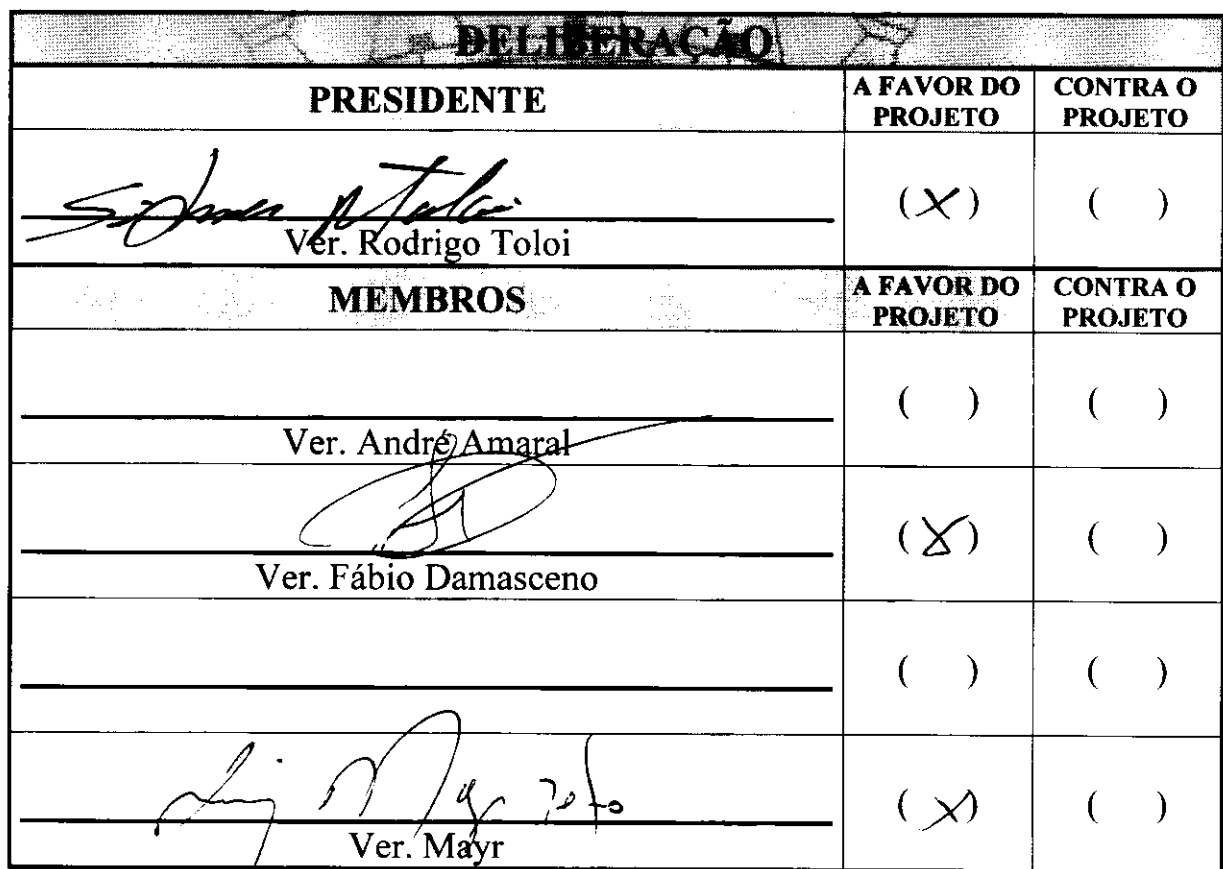 DELIBERAÇÃO
PRESIDENTE
A FAVOR DO PROJETO
CONTRA O PROJETO
(X)
( )
Ver. Rodrigo Toloi
MEMBROS
A FAVOR DO PROJETO
CONTRA O PROJETO
( )
( )
Ver. André Amaral
(X)
( )
Ver. Fábio Damasceno
( )
( )
(X)
( )
Ver. Mayr